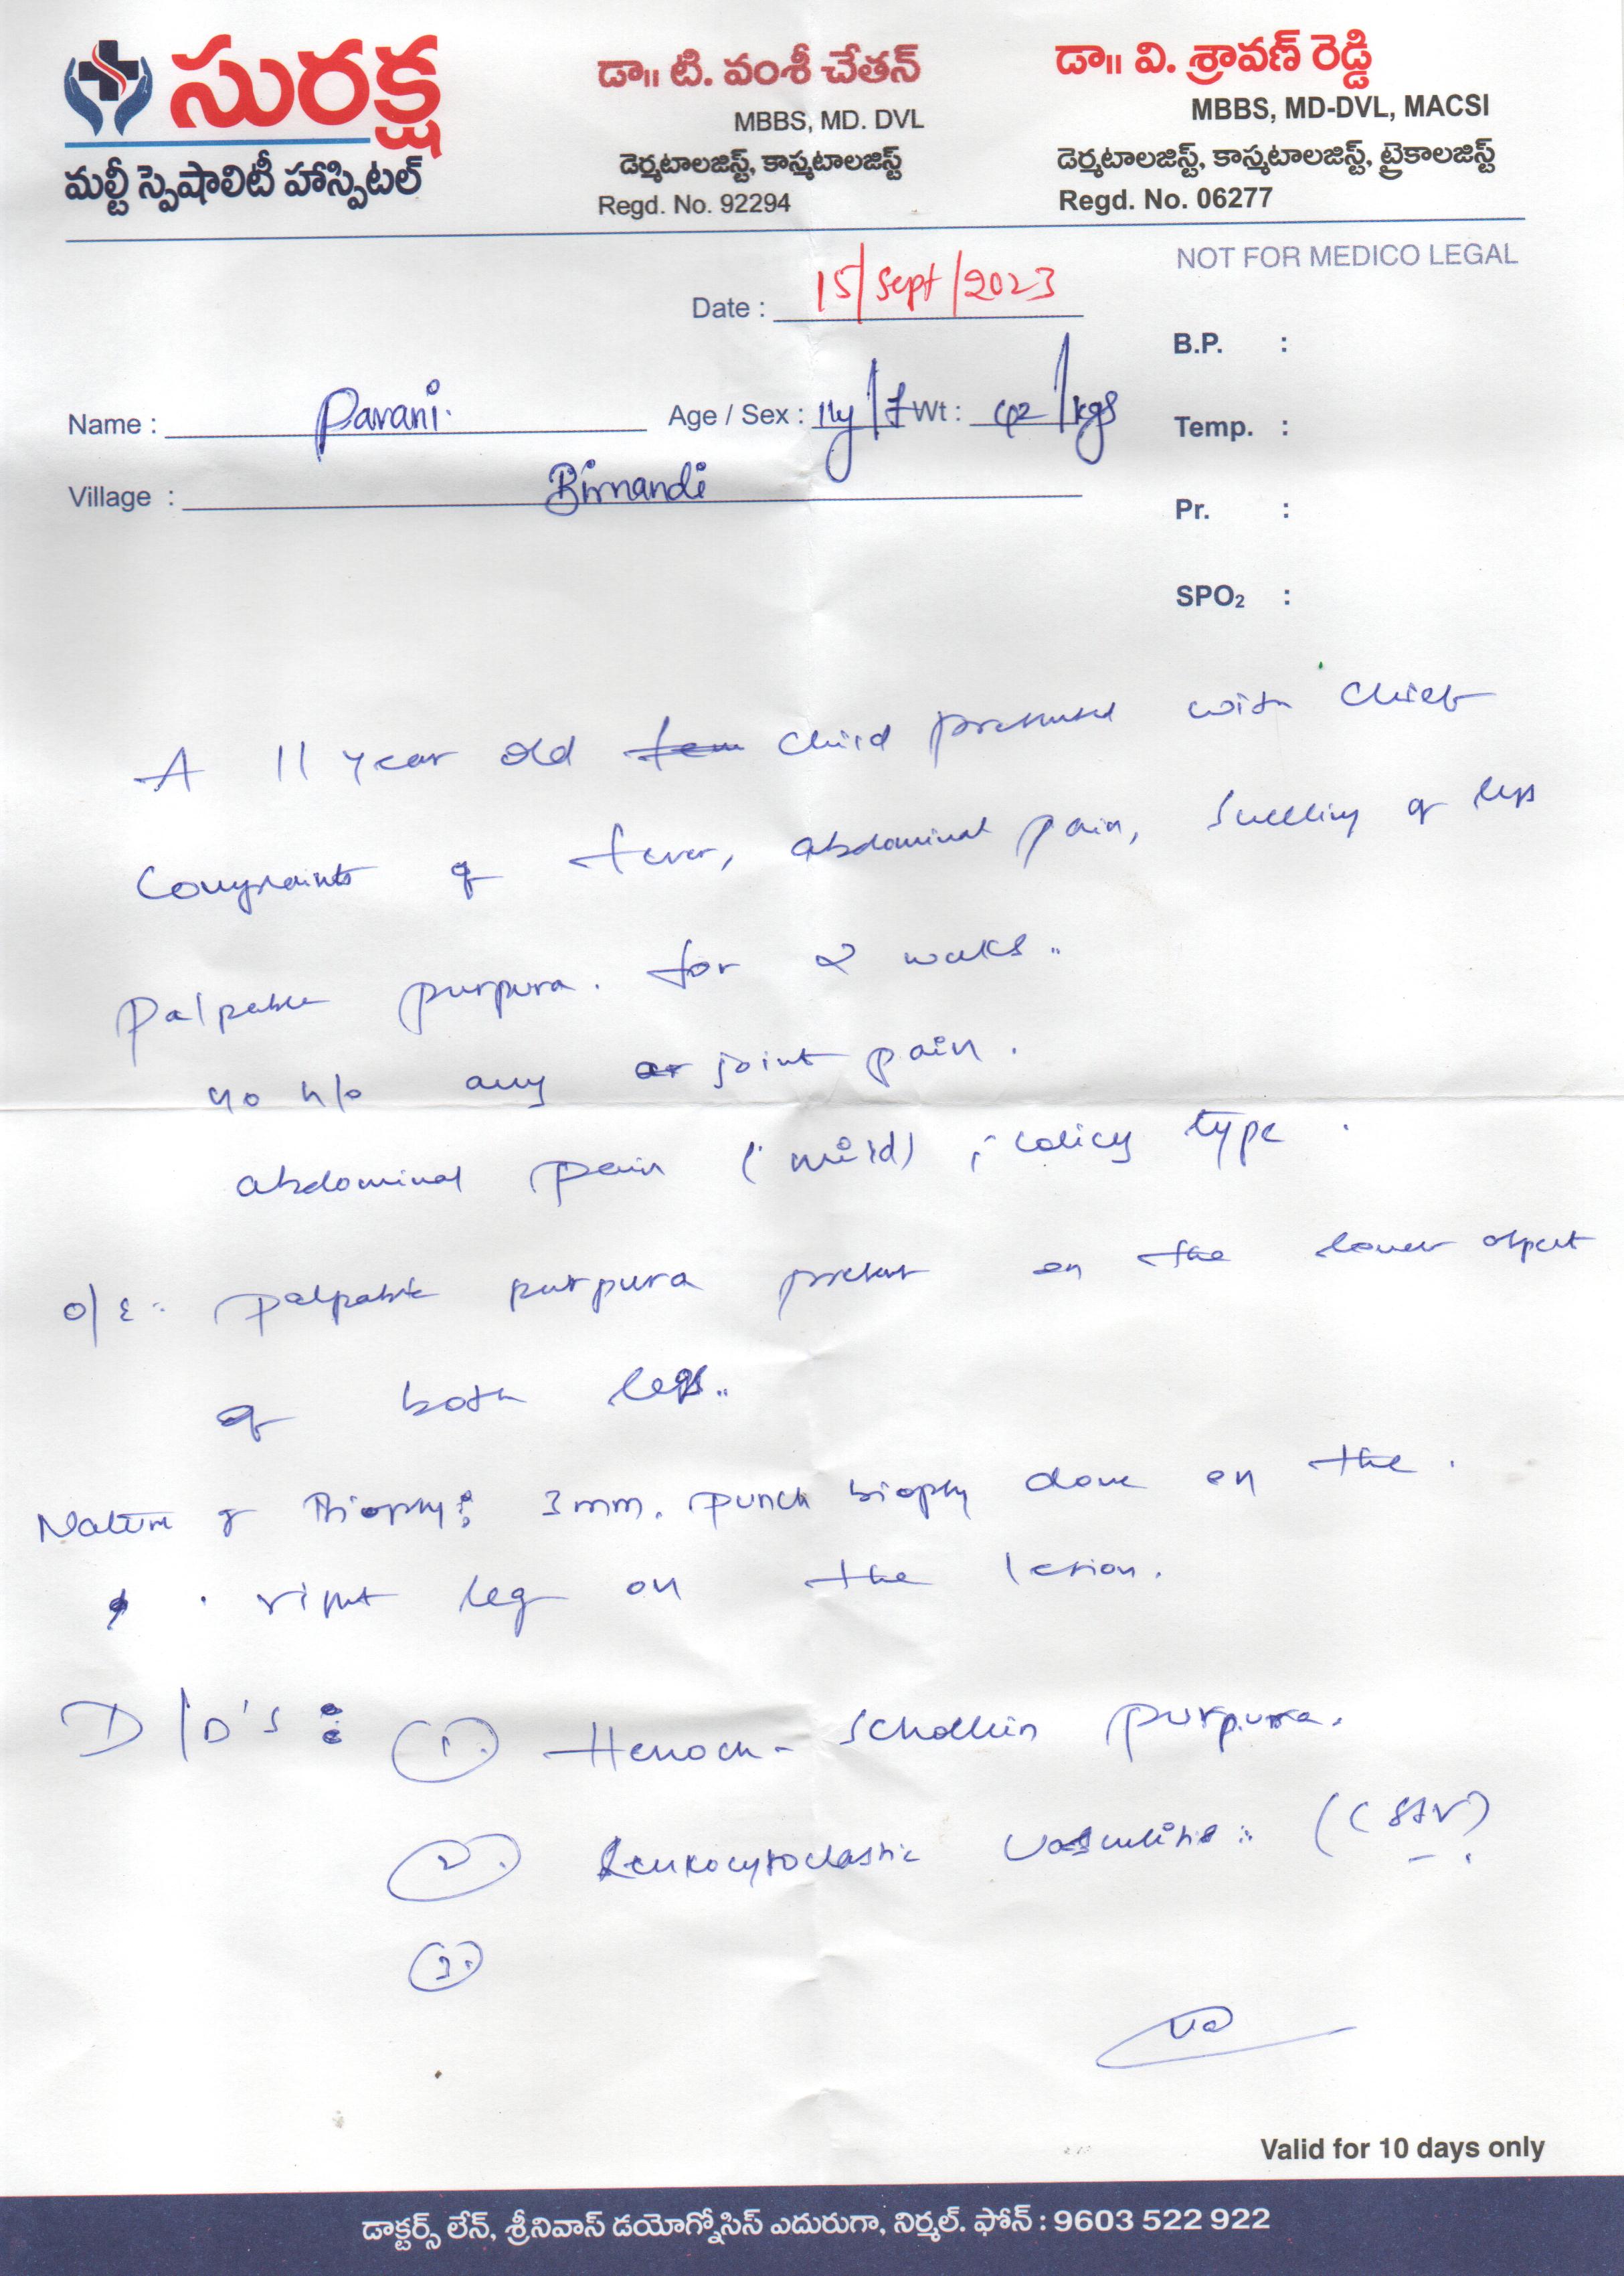 సురక్ష
మల్టీ స్పెషాలిటీ హాస్పిటల్
డా॥ టి. వంశీ చేతన్
MBBS, MD. DVL
డెర్మటాలజిస్ట్, కాస్మటాలజిస్ట్
Regd. No. 92294
డా॥ వి. శ్రావణ్ రెడ్డి
MBBS, MD-DVL, MACSI
డెర్మటాలజిస్ట్, కాస్మటాలజిస్ట్, ట్రైకాలజిస్ట్
Regd. No. 06277
NOT FOR MEDICO LEGAL
Date : 15/Sept/2023
B.P. :
Name : Pavani. Age / Sex : 11y/f Wt : 42/kgs
Temp. :
Village :
Pr. :
SPO₂ :
A 11 year old child presented with chief
complaints of fever, abdominal pain, swelling of legs
Palpable purpura. for 2 weeks..
no h/o any joint pain.
abdominal pain (mild) ; colicy type.
o/E:- Palpable purpura present on the lower aspect
of both legs..
Nature of Biopsy: 3mm. punch biopsy done on the.
right leg on the lesion.
D/D's : (1.) Henoch- Schollein purpura.
(2.) Leukocytoclastic vasculitis.. (CSSV)
(3.)
Valid for 10 days only
డాక్టర్స్ లేన్, శ్రీనివాస్ డయోగ్నోసిస్ ఎదురుగా, నిర్మల్. ఫోన్ : 9603 522 922